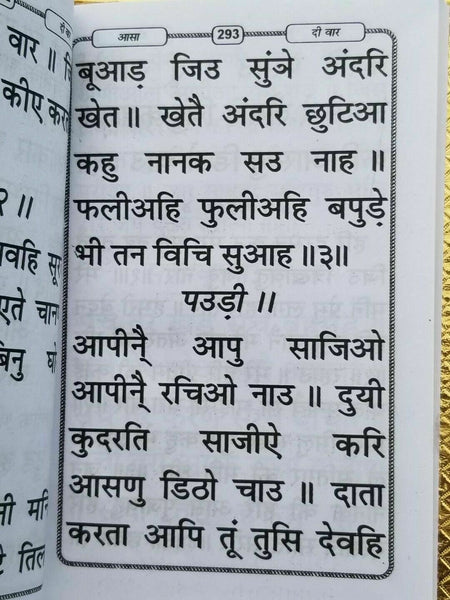 वार ॥
कीए
२ ॥
आसा 293 दी वार
बूआड़ जिउ सुंञे अंदरि
खेत ॥ खेतै अंदरि छुटिआ
कहु नानक सउ नाह ॥
फलीअहि फुलीअहि बपुड़े
भी तन विचि सुआह ॥३॥
पउड़ी ॥
आपीनै्ै आपु साजिओ
आपीनै्ै रचिओ नाउ ॥ दुयी
कुदरति साजीऐ करि
आसणु डिठो चाउ ॥ दाता
करता आपि तूं तुसि देवहि